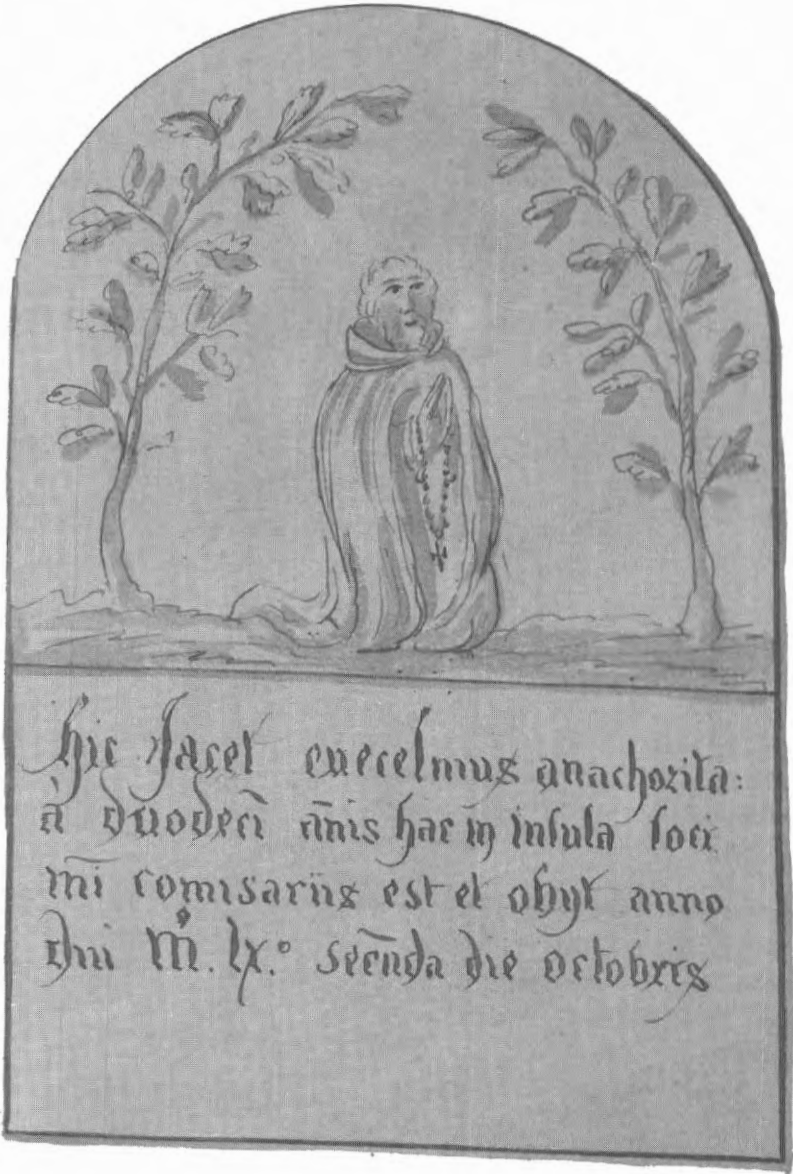 hic Jacet euecelmus anachorita:
à duodecī ān̄is hac in insula loci
mī comisariis est et obyt anno
dn̄i M̊. lx.° secūda die octobris